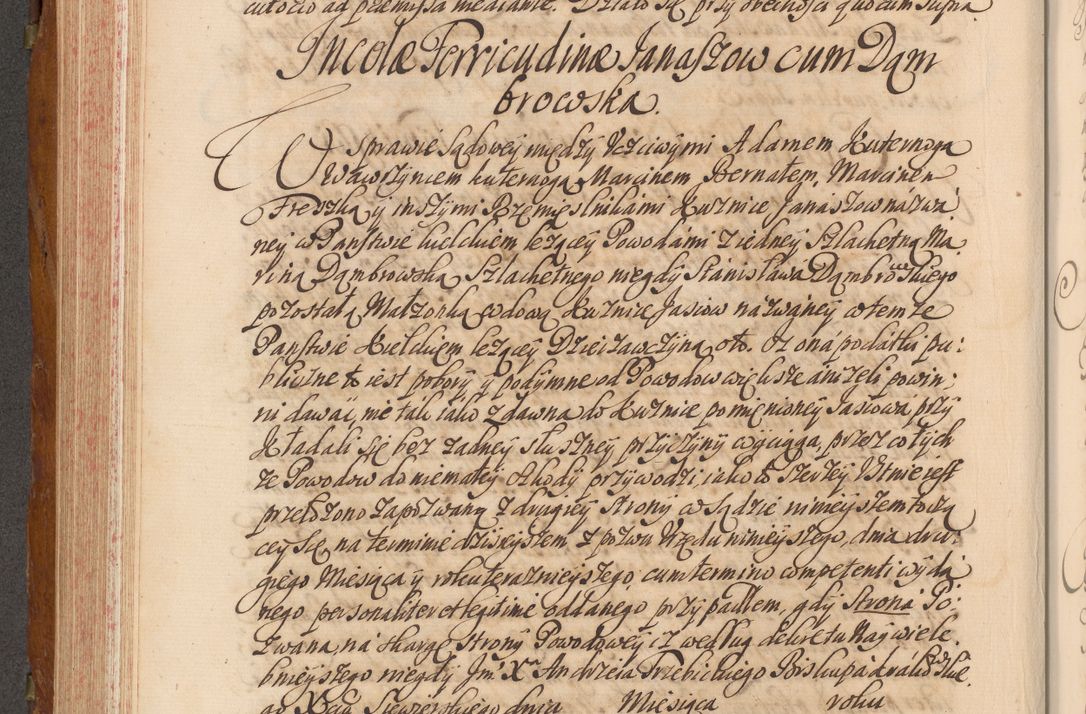 cutocio ad præmissa mediante. Działo się przy obecności quocum supra
Incolæ Ferricudinæ Janaszow cum Dąm
browska.
W sprawie sądowey między Uczciwymi Adamem Kuternogą
Wawrzyncem kuternogą, Marcinem Bernatem, Marcinem
Freszką y inszymi Rzemięslnikami Kuznice Janaszow názwá
ney w Panstwie kielckiem lezącey Powodámi z iedney Szlachetną Ma
riną Dąmbrowską Szlachetnego niegdy Stánisława Dąmbrowskiego
pozostałą Małzonką wdową Kuznice Jasiow názwáney w temze
Panstwie Kielckiem lezącey Dzierzawczyną, oto. Iz oná podatki pu:
bliczne to iest pobory y podymne od Powodow większe ániżeli powin:
ni dawáć, nie tak iáko z dawna do Kuznice pomienioney Jasiowá przy
kładáli się bez żadney słuszney przyczyny wyciąga, przez co tych
że Powodow do niemáłey szkody przywodzi, iáko to szerzey Ustnie iest
przełożono zapozwaną z drugiey strony w sądzie ninieyszem toczą
cey się, na terminie dzisieyszem z pozwu Urzędu ninieyszego, dniá dru
giego Miesiącá y roku terazniejszego cum termino competenti wydá
nego personaliter et legitime oddanego przypadłem, gdy Stroná Po:
zwana, ná skargę Strony Powodowey i z według dekretu Naywiele
bnieyszego niegdy Jm̃ Xᵃ Andrzeia Trzebickiego Biskupá
go Xcia Siewierskiego dnia Miesiąca roku